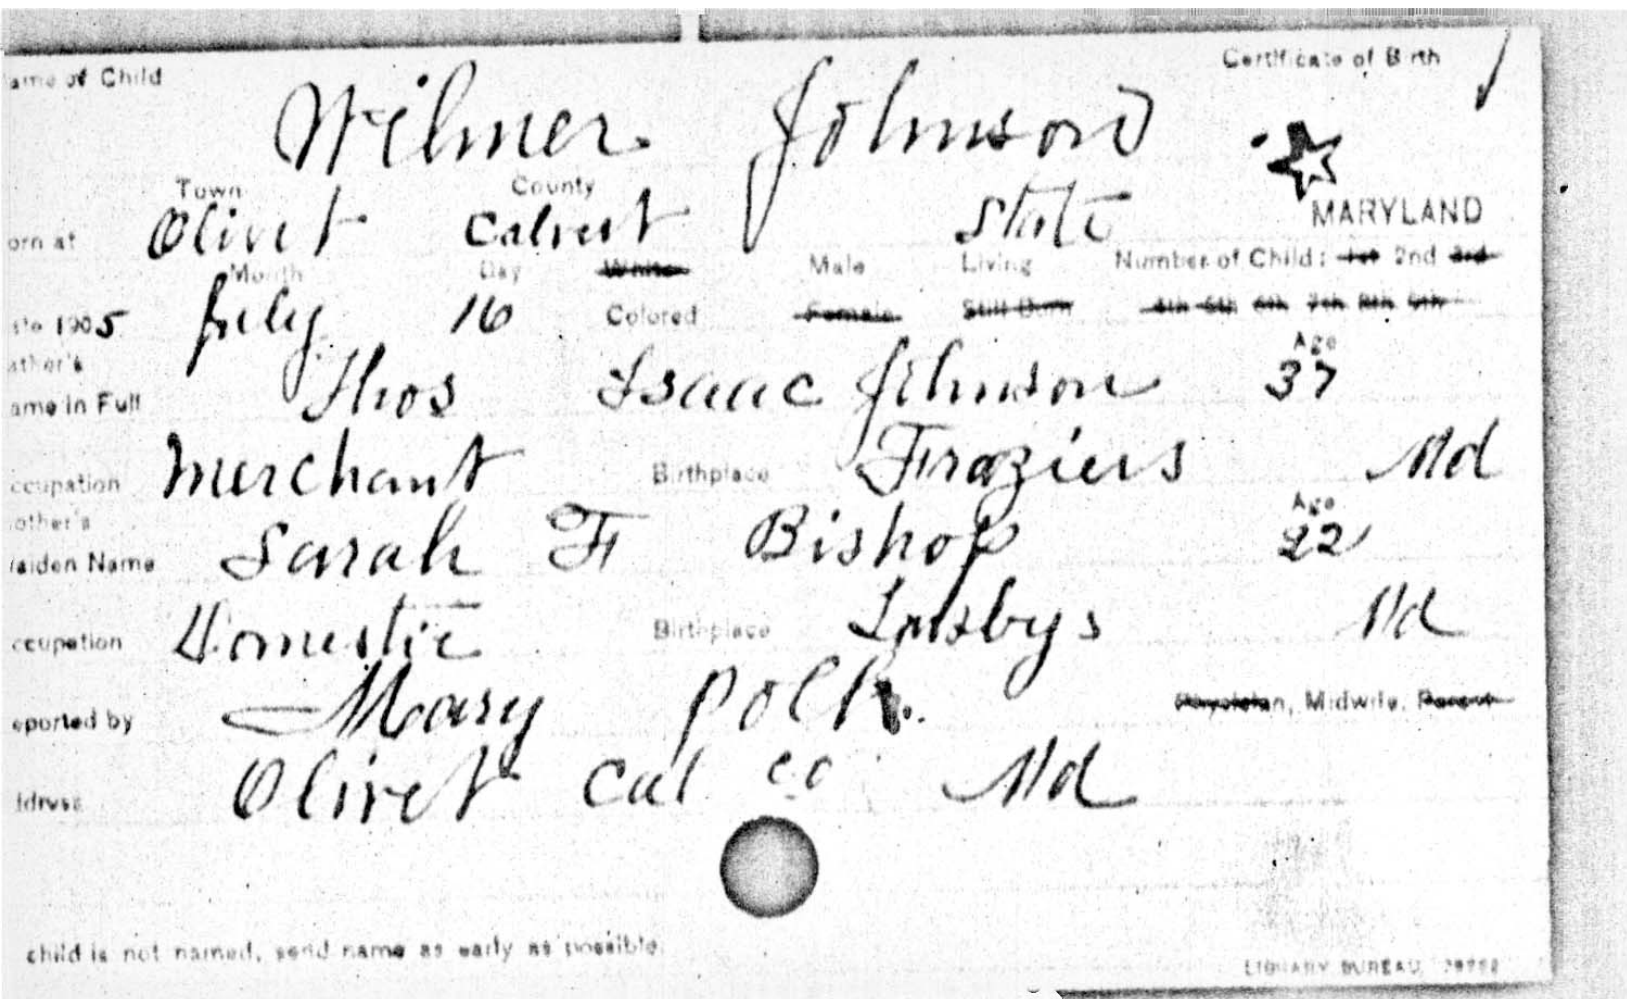 ame of Child
Certificate of Birth
Wilmer Johnson
Town County
orn at Olivet Calvert State MARYLAND
Month Day White Male Living Number of Child: 1st 2nd 3rd
1905 July 16 Colored Female Still Born 4th 5th 6th 7th 8th 9th
ather's Age
ame in Full Thos Isaac Johnson 37
ccupation Merchant Birthplace Fraziers Md
other's Age
aiden Name Sarah F Bishop 22
ccupation Domestic Birthplace Lusbys Md
eported by Mary Polk. Physician, Midwife, Parent
ddress Olivet Cal co Md
child is not named, send name as early as possible.
LIBRARY BUREAU